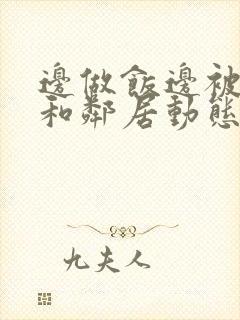 邊做飯邊被
和鄰居動態
九夫人